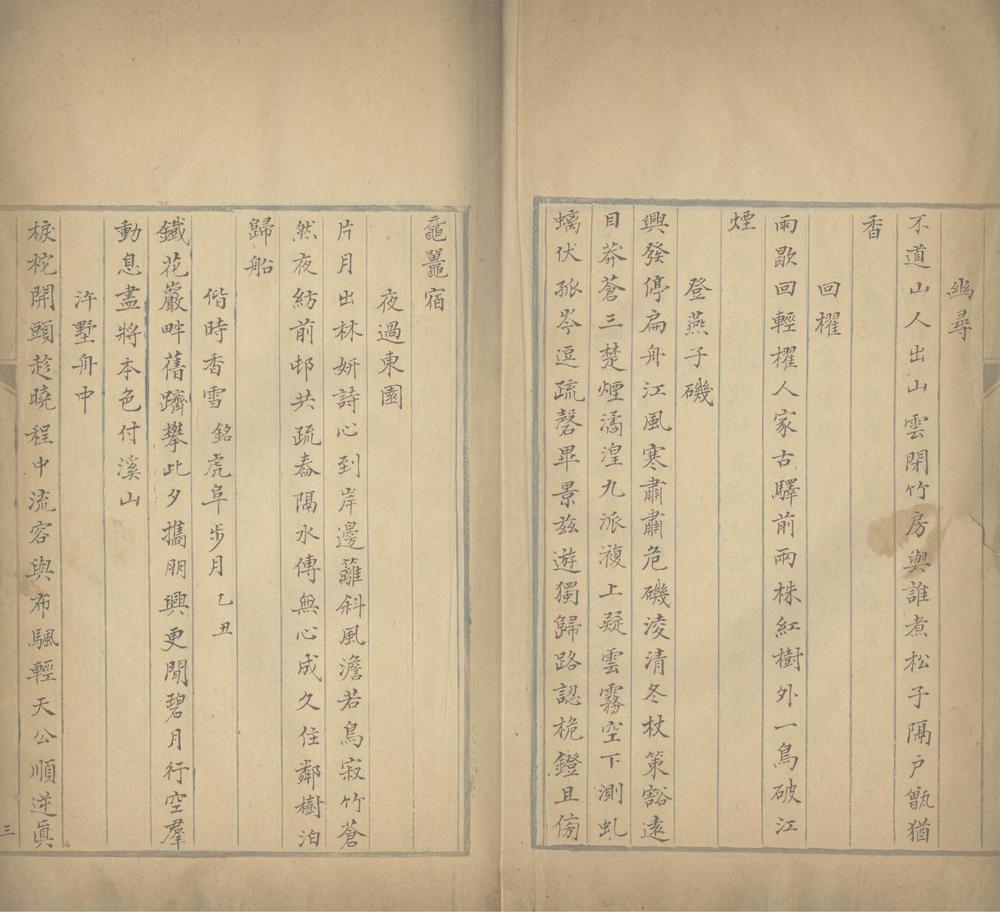 幽尋
不道山人出山雲閉竹房與誰煮松子隔戶甑猶
香
回櫂
雨歇回輕櫂人家古驛前兩株紅樹外一鳥破江
煙
登燕子磯
興發停扁舟江風寒肅肅危磯淩清冬杖策豁遠
目莽蒼三楚煙潏湟九派複上疑雲霧空下測虬
螭伏孤岑逗疏磬畢景茲遊獨歸路認桅鐙且傍
黿鼉宿
夜過東園
片月出林妍詩心到岸邊籬斜風澹若鳥寂竹蒼
然夜紡前邨共疏舂隔水傳無心成久住鄰樹泊
歸船
偕時香雪銘虎阜步月乙丑
鐵花巖畔舊躋攀此夕攜朋興更閒碧月行空羣
動息盡將本色付溪山
滸墅舟中
捩柁開頭趁曉程中流容與布颿輕天公順逆眞
三